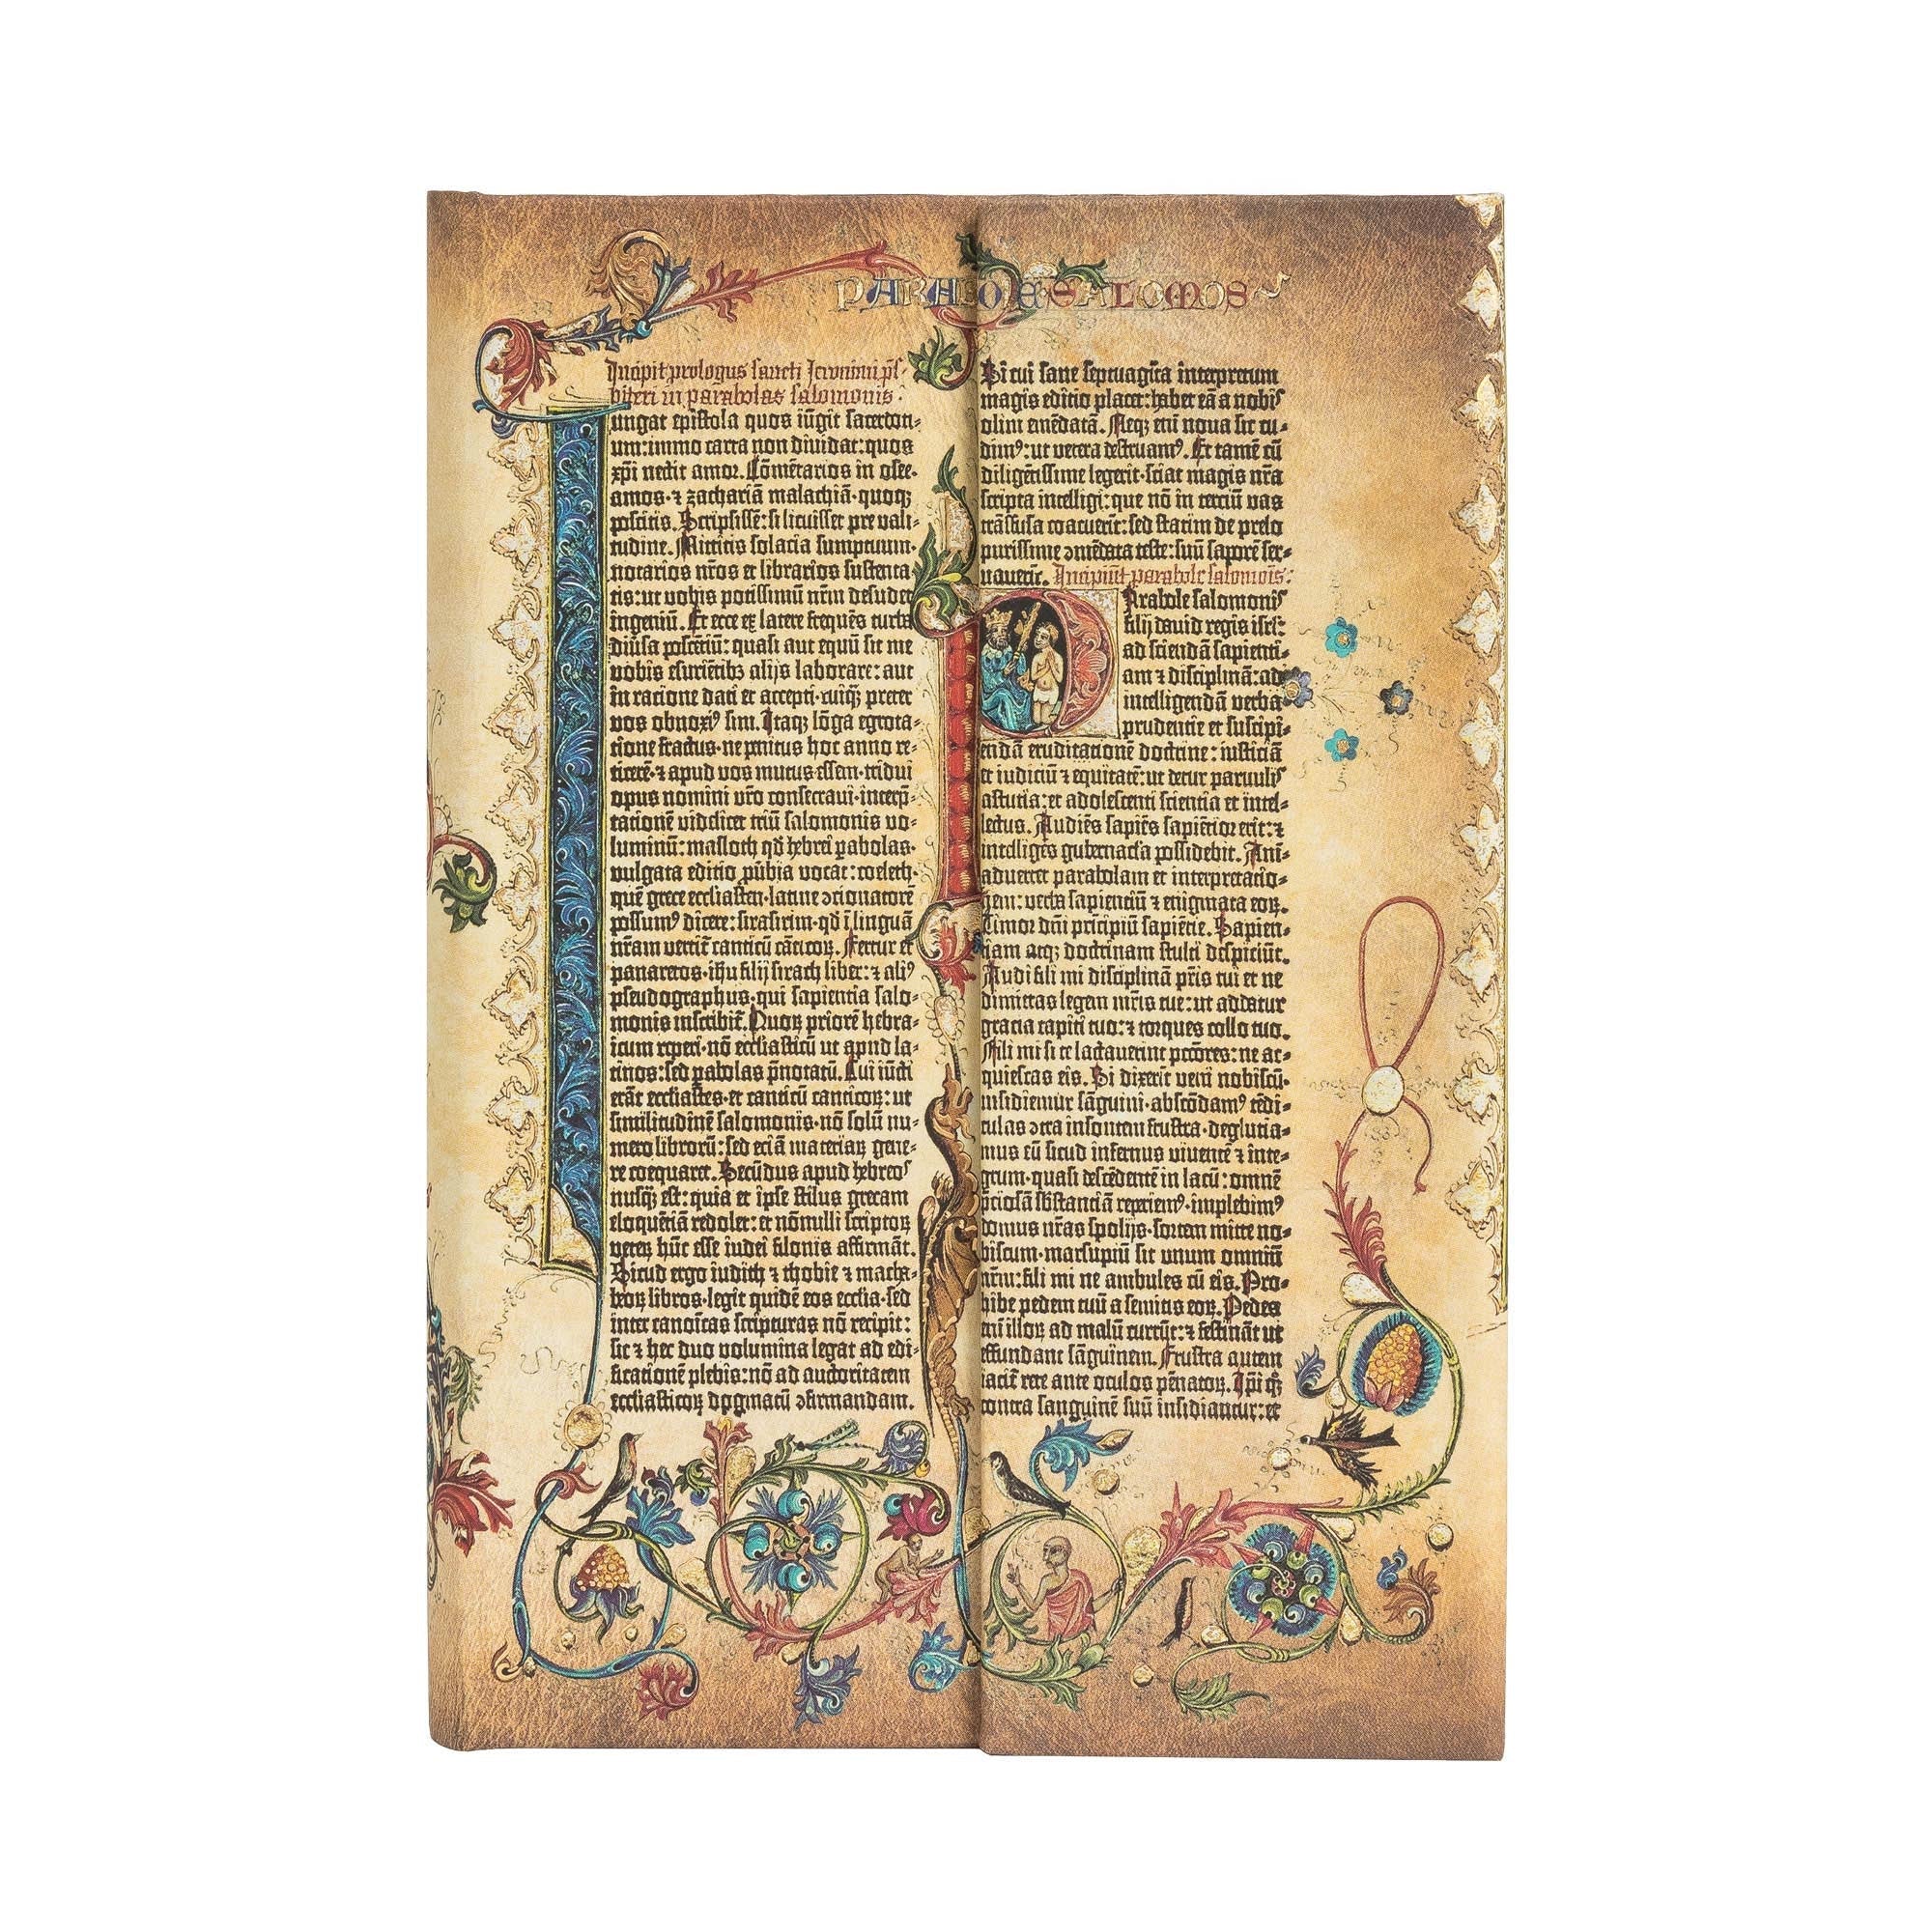 PARABOLE SALOMOIS
Incipit prologus sancti Jeronimi ps-
biteri in parabolas salomonis.
Iungat epistola quos iũgit sacerdoti-
um: immo carta non diuidat: quos
xp̄i nectit amor. Cõmẽtarios in osee·
amos·⁊ zachariã malachiã·quoqȝ
poscitis. Scripsissẽ: si licuisset pre vali-
tudine. Mittitis solacia sumptuum·
notarios nr̃os et librarios sustenta-
tis: ut vobis potissimũ nr̃m desudet
ingeniũ. Et ecce ex latere frequẽs turba
diũsa poscẽtiũ: quasi aut equũ sit me
vobis esuriẽtibȝ alijs laborare: aut
in racione dati et accepti·cuiqȝ preter
vos obnoxiꝰ sim. Itaqȝ lõga egrota-
tione fractus·ne penitus hoc anno re-
ticerẽ·⁊ apud vos mutus essem·tridui
opus nomini vr̃o consecraui·interp̃-
tationẽ videlicet triũ salomonis vo-
luminũ: masloth qđ hebrei ꝑabolas·
vulgata editio ꝓũbia vocat: coeleth·
quẽ grece ecclesiasten·latine ↄcionatorẽ
possumꝰ dicere: sirasirim·qđ ĩ linguã
nr̃am vertit̃ canticũ cãticoꝝ. Fertur et
panaretos·ihũ filij sirach liber: ⁊ aliꝰ
pseudographus·qui sapientia salo-
monis inscribit̃. Quoꝝ priorẽ hebra-
icum reperi·nõ ecclesiasticũ ut apud la-
tinos: sed ꝑabolas p̃notatũ. Cui iũcti
erãt ecclesiastes·et canticũ canticoꝝ: ut
similitudinẽ salomonis·nõ solũ nu-
mero librorũ: sed eciã materiaꝝ gene-
re coequaret. Secũdus apud hebreos
nusqȝ est: quia et ipse stilus grecam
eloquẽtiã redolet: et nõnulli scriptoꝝ
veteꝝ hũc esse iudei filonis affirmãt.
Sicud ergo iudith ⁊ thobie ⁊ macha-
beoꝝ libros·legit quidẽ eos ecclesia·sed
inter canoicas scripturas nõ recipit:
sic ⁊ hec duo volumina legat ad edi-
ficationẽ plebis: nõ ad auctoritatem
ecclesiasticoꝝ dogmatũ ↄfirmandam.
Si cui sane septuagĩta interpretum
magis editio placet: habet eã a nobis
olim emẽdatã. Neqȝ eñi noua sic cu-
dimꝰ: ut vetera destruamꝰ. Et tamẽ cũ
diligẽtissime legerit·sciat magis nr̃a
scripta intelligi: que nõ in terciũ vas
trãsfusa coacuerĩt: sed statim de prelo
purissime ↄmẽdata teste: suũ saporẽ ser-
uauerĩt. Incipiũt parabole salomois:
Parabole salomonis
filij dauid regis isrl̃:
ad sciendã sapienti-
am ⁊ disciplinã: ad
intelligendã verba
prudentie et suscipi-
endã eruditationẽ doctrine: iusticiã
et iudiciũ ⁊ equitatẽ: ut detur paruulis
astutia: et adolescenti scientia et intel-
lectus. Audiẽs sapiẽs sapiẽtior erit: ⁊
intelligẽs gubernacĩa possidebit. Ani-
aduertet parabolam et interpretatio-
nem: verba sapientiũ ⁊ enigmata eoꝝ.
Timor dñi prĩcipiũ sapiẽtie. Sapien-
tiam atqȝ doctrinam stulti despiciũt.
Audi fili mi disciplinã pr̃is tui et ne
dimittas legem mr̃is tue: ut addatur
gracia capiti tuo: ⁊ torques collo tuo.
Fili mi si te lactauerint pctõres: ne ac-
quiescas eis. Si dixerĩt veni nobiscũ·
insidiemur sãguini·abscõdamꝰ tẽdi-
culas ↄtra insontem frustra·deglutia-
mus eũ sicud infernus viuentẽ ⁊ inte-
grum·quasi descẽdentẽ in lacũ: omnẽ
p̃ciosã sb̃stantiã reperiemꝰ·implebimꝰ
domus nr̃as spolijs·sortem mitte no-
biscum·marsupiũ sit unum omniũ
nr̃m: fili mi ne ambules cũ eis. Pro-
hibe pedem tuũ a semitis eoꝝ. Pedes
eñi illoꝝ ad malũ currũt: ⁊ festinãt ut
effundant sãguinem. Frustra autem
iacit̃ rete ante oculos pẽnatoꝝ. Ip̃i qȝ
contra sanguinẽ suũ insidiantur: et